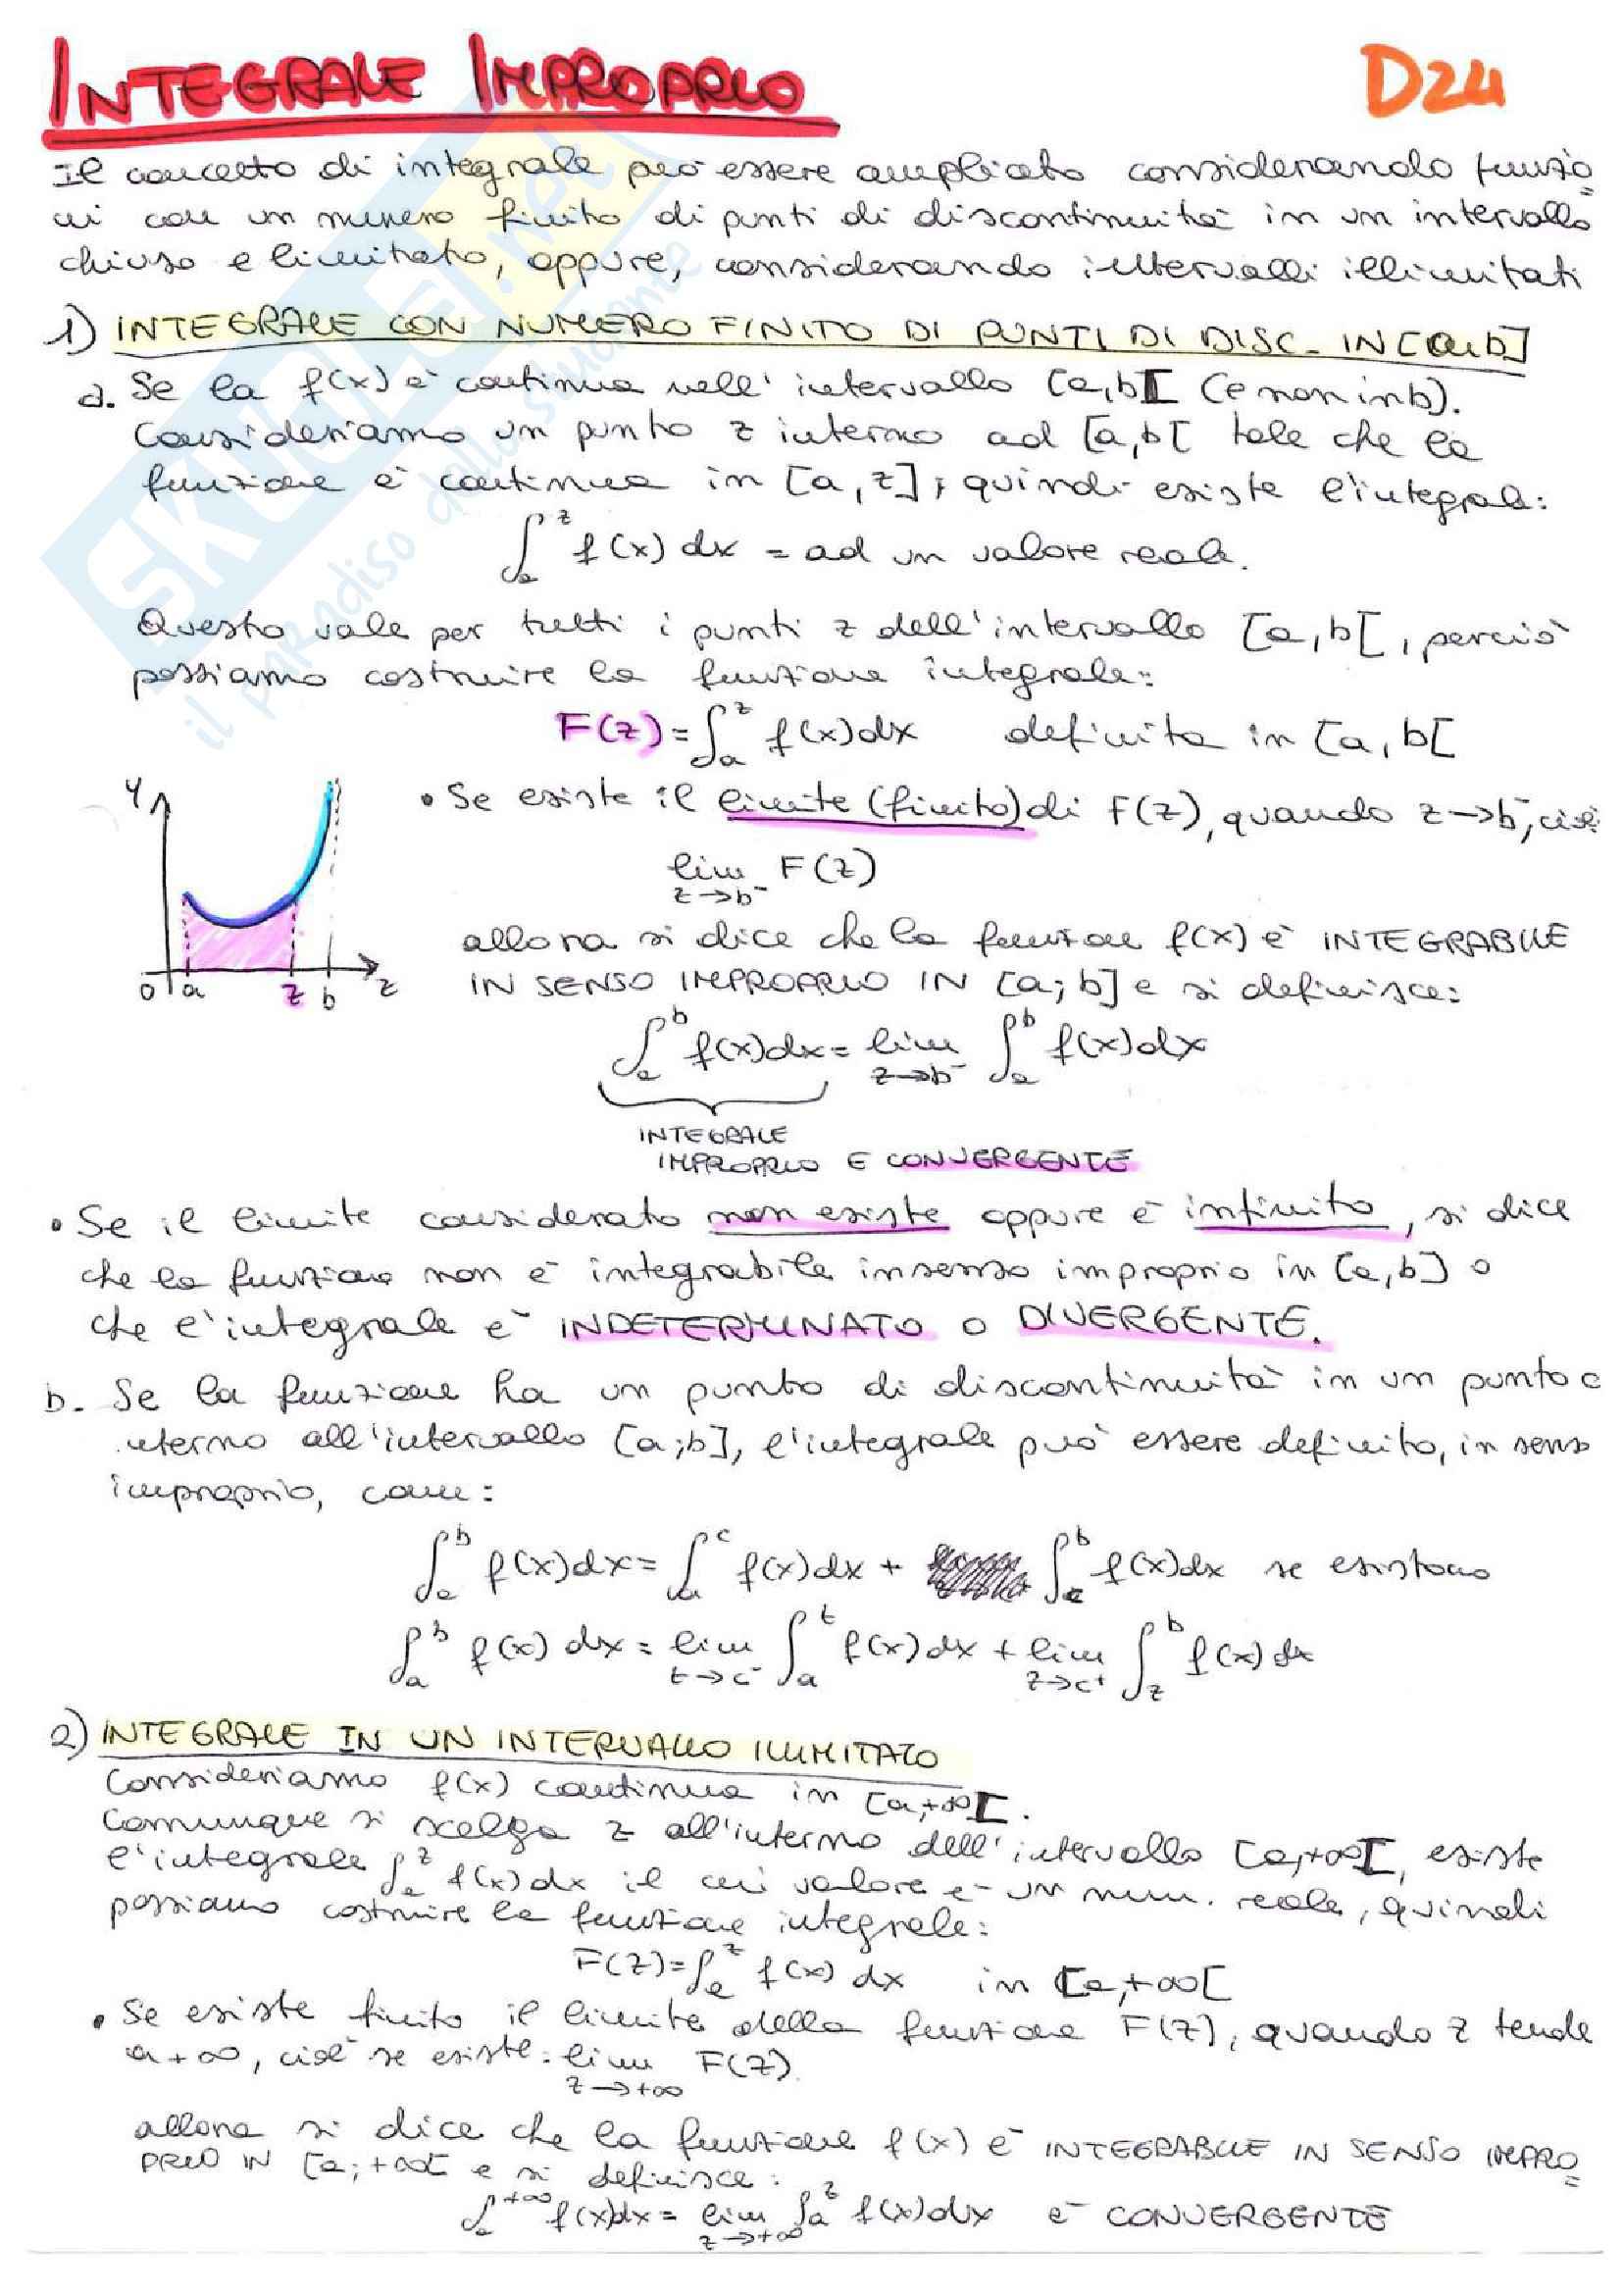 INTEGRALE IMPROPRIO
D24
Il concetto di integrale può essere ampliato considerando funzio=
ni con un numero finito di punti di discontinuità in un intervallo
chiuso e limitato, oppure, considerando intervalli illimitati
1) INTEGRALE CON NUMERO FINITO DI PUNTI DI DISC. IN [a;b]
a. Se la f(x) è continua nell'intervallo [a,b[ (e non in b).
Consideriamo un punto z interno ad [a,b[ tale che la
funzione è continua in [a,z]; quindi esiste l'integrale:
∫ₐᶻ f(x)dx = ad un valore reale.
Questo vale per tutti i punti z dell'intervallo [a,b[, perciò
possiamo costruire la funzione integrale:
F(z)=∫ₐᶻ f(x)dx definita in [a,b[
y
o a z b z
• Se esiste il limite (finito) di F(z), quando z→b⁻, cioè
lim F(z)
z→b⁻
allora si dice che la funzione f(x) è INTEGRABILE
IN SENSO IMPROPRIO IN [a;b] e si definisce:
∫ₐᵇ f(x)dx = lim ∫ₐᵇ f(x)dx
z→b⁻
INTEGRALE
IMPROPRIO E CONVERGENTE
• Se il limite considerato non esiste oppure è infinito, si dice
che la funzione non è integrabile in senso improprio in [a,b] o
che l'integrale è INDETERMINATO o DIVERGENTE.
b. Se la funzione ha un punto di discontinuità in un punto c
interno all'intervallo [a;b], l'integrale può essere definito, in senso
improprio, come:
∫ₐᵇ f(x)dx = ∫ₐᶜ f(x)dx + ∫_c^b f(x)dx se esistono
∫ₐᵇ f(x)dx = lim ∫ₐᵗ f(x)dx + lim ∫_z^b f(x)dx
t→c⁻ z→c⁺
2) INTEGRALE IN UN INTERVALLO ILLIMITATO
Consideriamo f(x) continua in [a,+∞[.
Comunque si scelga z all'interno dell'intervallo [a,+∞[, esiste
l'integrale ∫ₐᶻ f(x)dx il cui valore è un num. reale, quindi
possiamo costruire la funzione integrale:
F(z)=∫ₐᶻ f(x)dx in [a,+∞[
• Se esiste finito il limite della funzione F(z), quando z tende
a +∞, cioè se esiste: lim F(z)
z→+∞
allora si dice che la funzione f(x) è INTEGRABILE IN SENSO IMPRO=
PRIO IN [a;+∞[ e si definisce:
∫ₐ^+∞ f(x)dx = lim ∫ₐᶻ f(x)dx è CONVERGENTE
z→+∞
SKUOLA.net
il paradiso dello studente